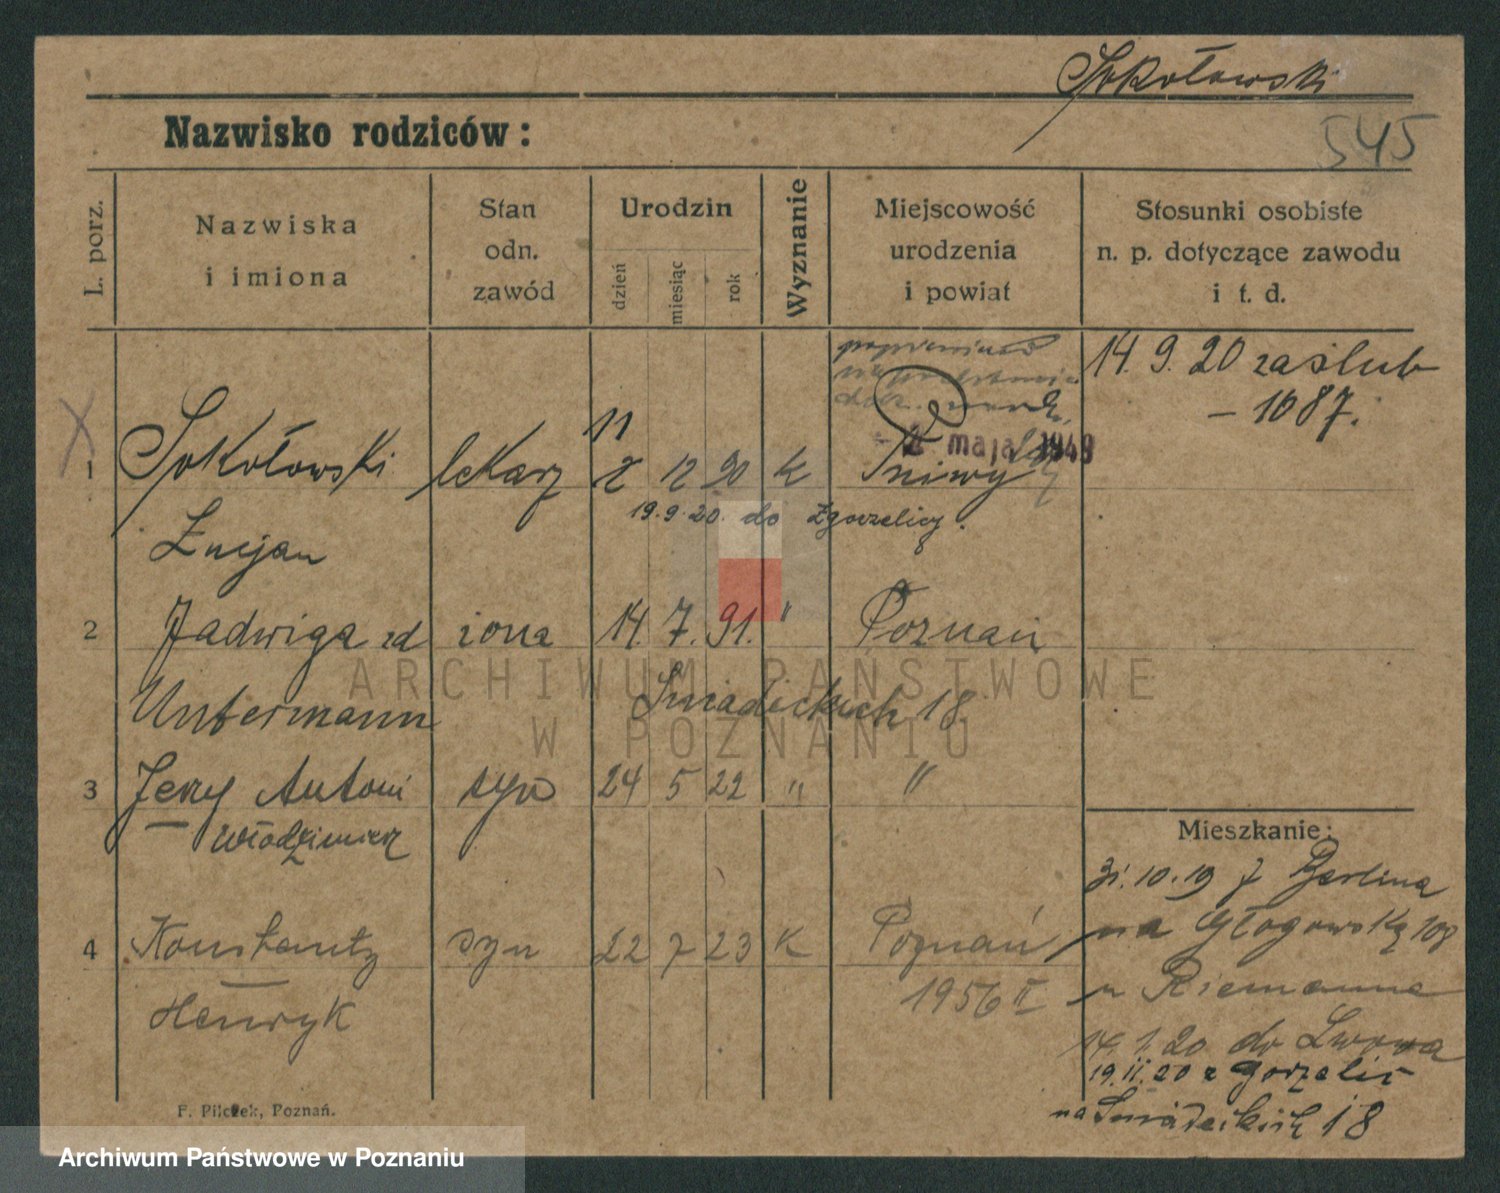 Sokołowski
Nazwisko rodziców:
545
L. porz.
Nazwiska
i imiona
Stan
odn.
zawód
Urodzin
dzień
miesiąc
rok
Wyznanie
Miejscowość
urodzenia
i powiat
Stosunki osobiste
n. p. dotyczące zawodu
i t. d.
14. 9. 20 zaślub
- 1087.
maja 1949
11
1 Sokołowski lekarz 12 90 k Pniewy
19.9.20. do Zgorzelicy.
Lucjan
2 Jadwiga zd żona 14. 7. 91. " Poznań
Untermann Śniadeckich 18
3 Jerzy Antoni syn 24 5 22 " "
Włodzimierz
Mieszkanie:
31.10.19 z Berlina
na Głogowską 108
4 Konstanty syn 22 7 23 k Poznań
u Riemanna
1956 II
Henryk
14.1.20 do Lwowa
19.11.20 z Gorzelic
na Śniadeckich 18
F. Pilczek, Poznań.
ARCHIWUM PAŃSTWOWE
W POZNANIU
Archiwum Państwowe w Poznaniu